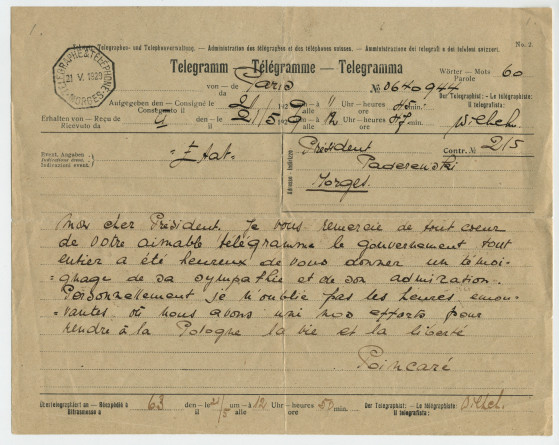 Telegraphen- und Telephonverwaltung. — Administration des télégraphes et des téléphones suisses. — Amministrazione dei telegrafi e dei telefoni svizzeri.
No. 2.
TELEGRAPHE & TELEPHONE
21. V. 1929
MORGES
Telegramm — Télégramme — Telegramma
Wörter — Mots 60
Parole
von — de Paris
da
№ 0640944
Aufgegeben den — Consigné le 21/5 1929 um — à 11 Uhr — heures 45 min.
Consegnato il alle ore
Der Telegraphist: — Le télégraphiste:
Il telegrafista:
Erhalten von — Reçu de den — le 21/5 1929 um — à 12 Uhr — heures 47 min.
Ricevuto da il alle ore
Event. Angaben
Indications évent.
Indicazioni event.
=Etat=
Adresse — Indirizzo
Président Contr. № 215
Paderewski
Morges.
Mon cher Président. Je vous remercie de tout coeur
de votre aimable télégramme le gouvernement tout
entier a été heureux de vous donner un témoi-
=gnage de sa sympathie et de son admiration.
Personnellement je n'oublie pas les heures émou-
vantes où nous avons uni nos efforts pour
rendre à la Pologne la vie et la liberté
Poincaré
Übertelegraphiert an — Réexpédié à 63 den — le 21/5 um — à 12 Uhr — heures 50 min.
Ritrasmesso a il alle ore
Der Telegraphist: — Le télégraphiste:
Il telegrafista: